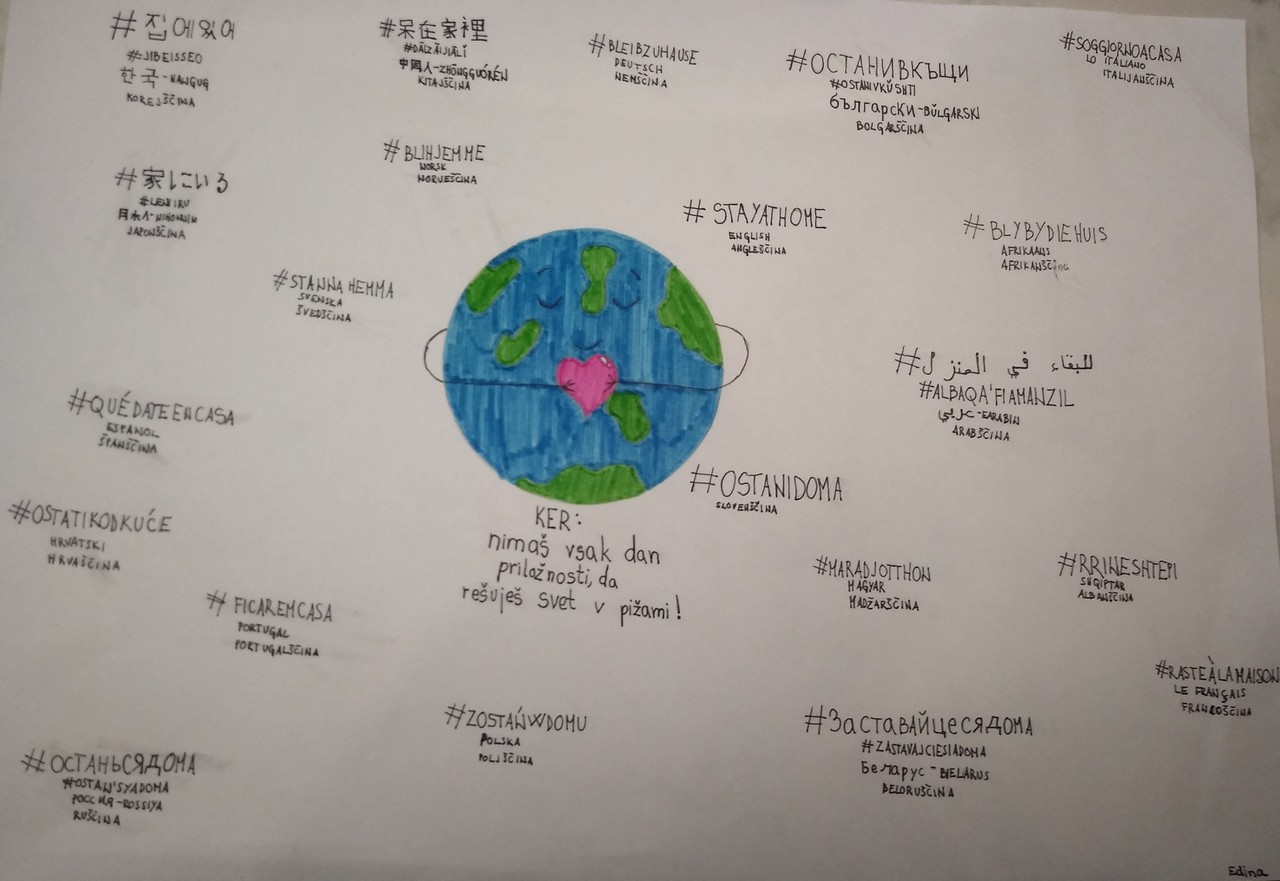 # 집에있어
#JIBEISSEO
한국-HANGUG
KOREJŠČINA
#呆在家裡
#DĀIZÀIJIĀLǏ
中國人-ZHŌNGGUÓRÉN
KITAJŠČINA
#BLEIBZUHAUSE
DEUTSCH
NEMŠČINA
#ОСТАНИВКЪЩИ
#OSTANIVKŬSHTI
български-BŬLGARSKI
BOLGARŠČINA
#SOGGIORNOACASA
LO ITALIANO
ITALIJANŠČINA
#家にいる
#IENIIRU
日本人-NIHONJIN
JAPONŠČINA
#BLIHJEMME
NORSK
NORVEŠČINA
# STAYATHOME
ENGLISH
ANGLEŠČINA
#BLYBYDIEHUIS
AFRIKAANS
AFRIKANŠČINA
#STANNA HEMMA
SVENSKA
ŠVEDŠČINA
#للبقاء في المنزل
#ALBAQA'FIAMANZIL
عربي-EARABIN
ARABŠČINA
#QUÉDATEENCASA
ESPANOL
ŠPANŠČINA
#OSTANIDOMA
SLOVENŠČINA
#OSTATIKODKUĆE
HRVATSKI
HRVAŠČINA
KER:
nimaš vsak dan
priložnosti, da
rešuješ svet v pižami!
#MARADJOTTHON
MAGYAR
MADŽARŠČINA
#RRINESHTEPI
SHQIPTAR
ALBANŠČINA
# FICAREMCASA
PORTUGAL
PORTUGALŠČINA
#RASTEÀLAMAISON
LE FRANÇAIS
FRANCOŠČINA
#ZOSTAŃWDOMU
POLSKA
POLJŠČINA
#Заставайцесядома
#ZASTAVAJCIESIADOMA
Беларус-BIELARUS
BELORUŠČINA
#ОСТАНЬСЯДОМА
#OSTAN'SYADOMA
РОССИЯ-ROSSIYA
RUŠČINA
Edina